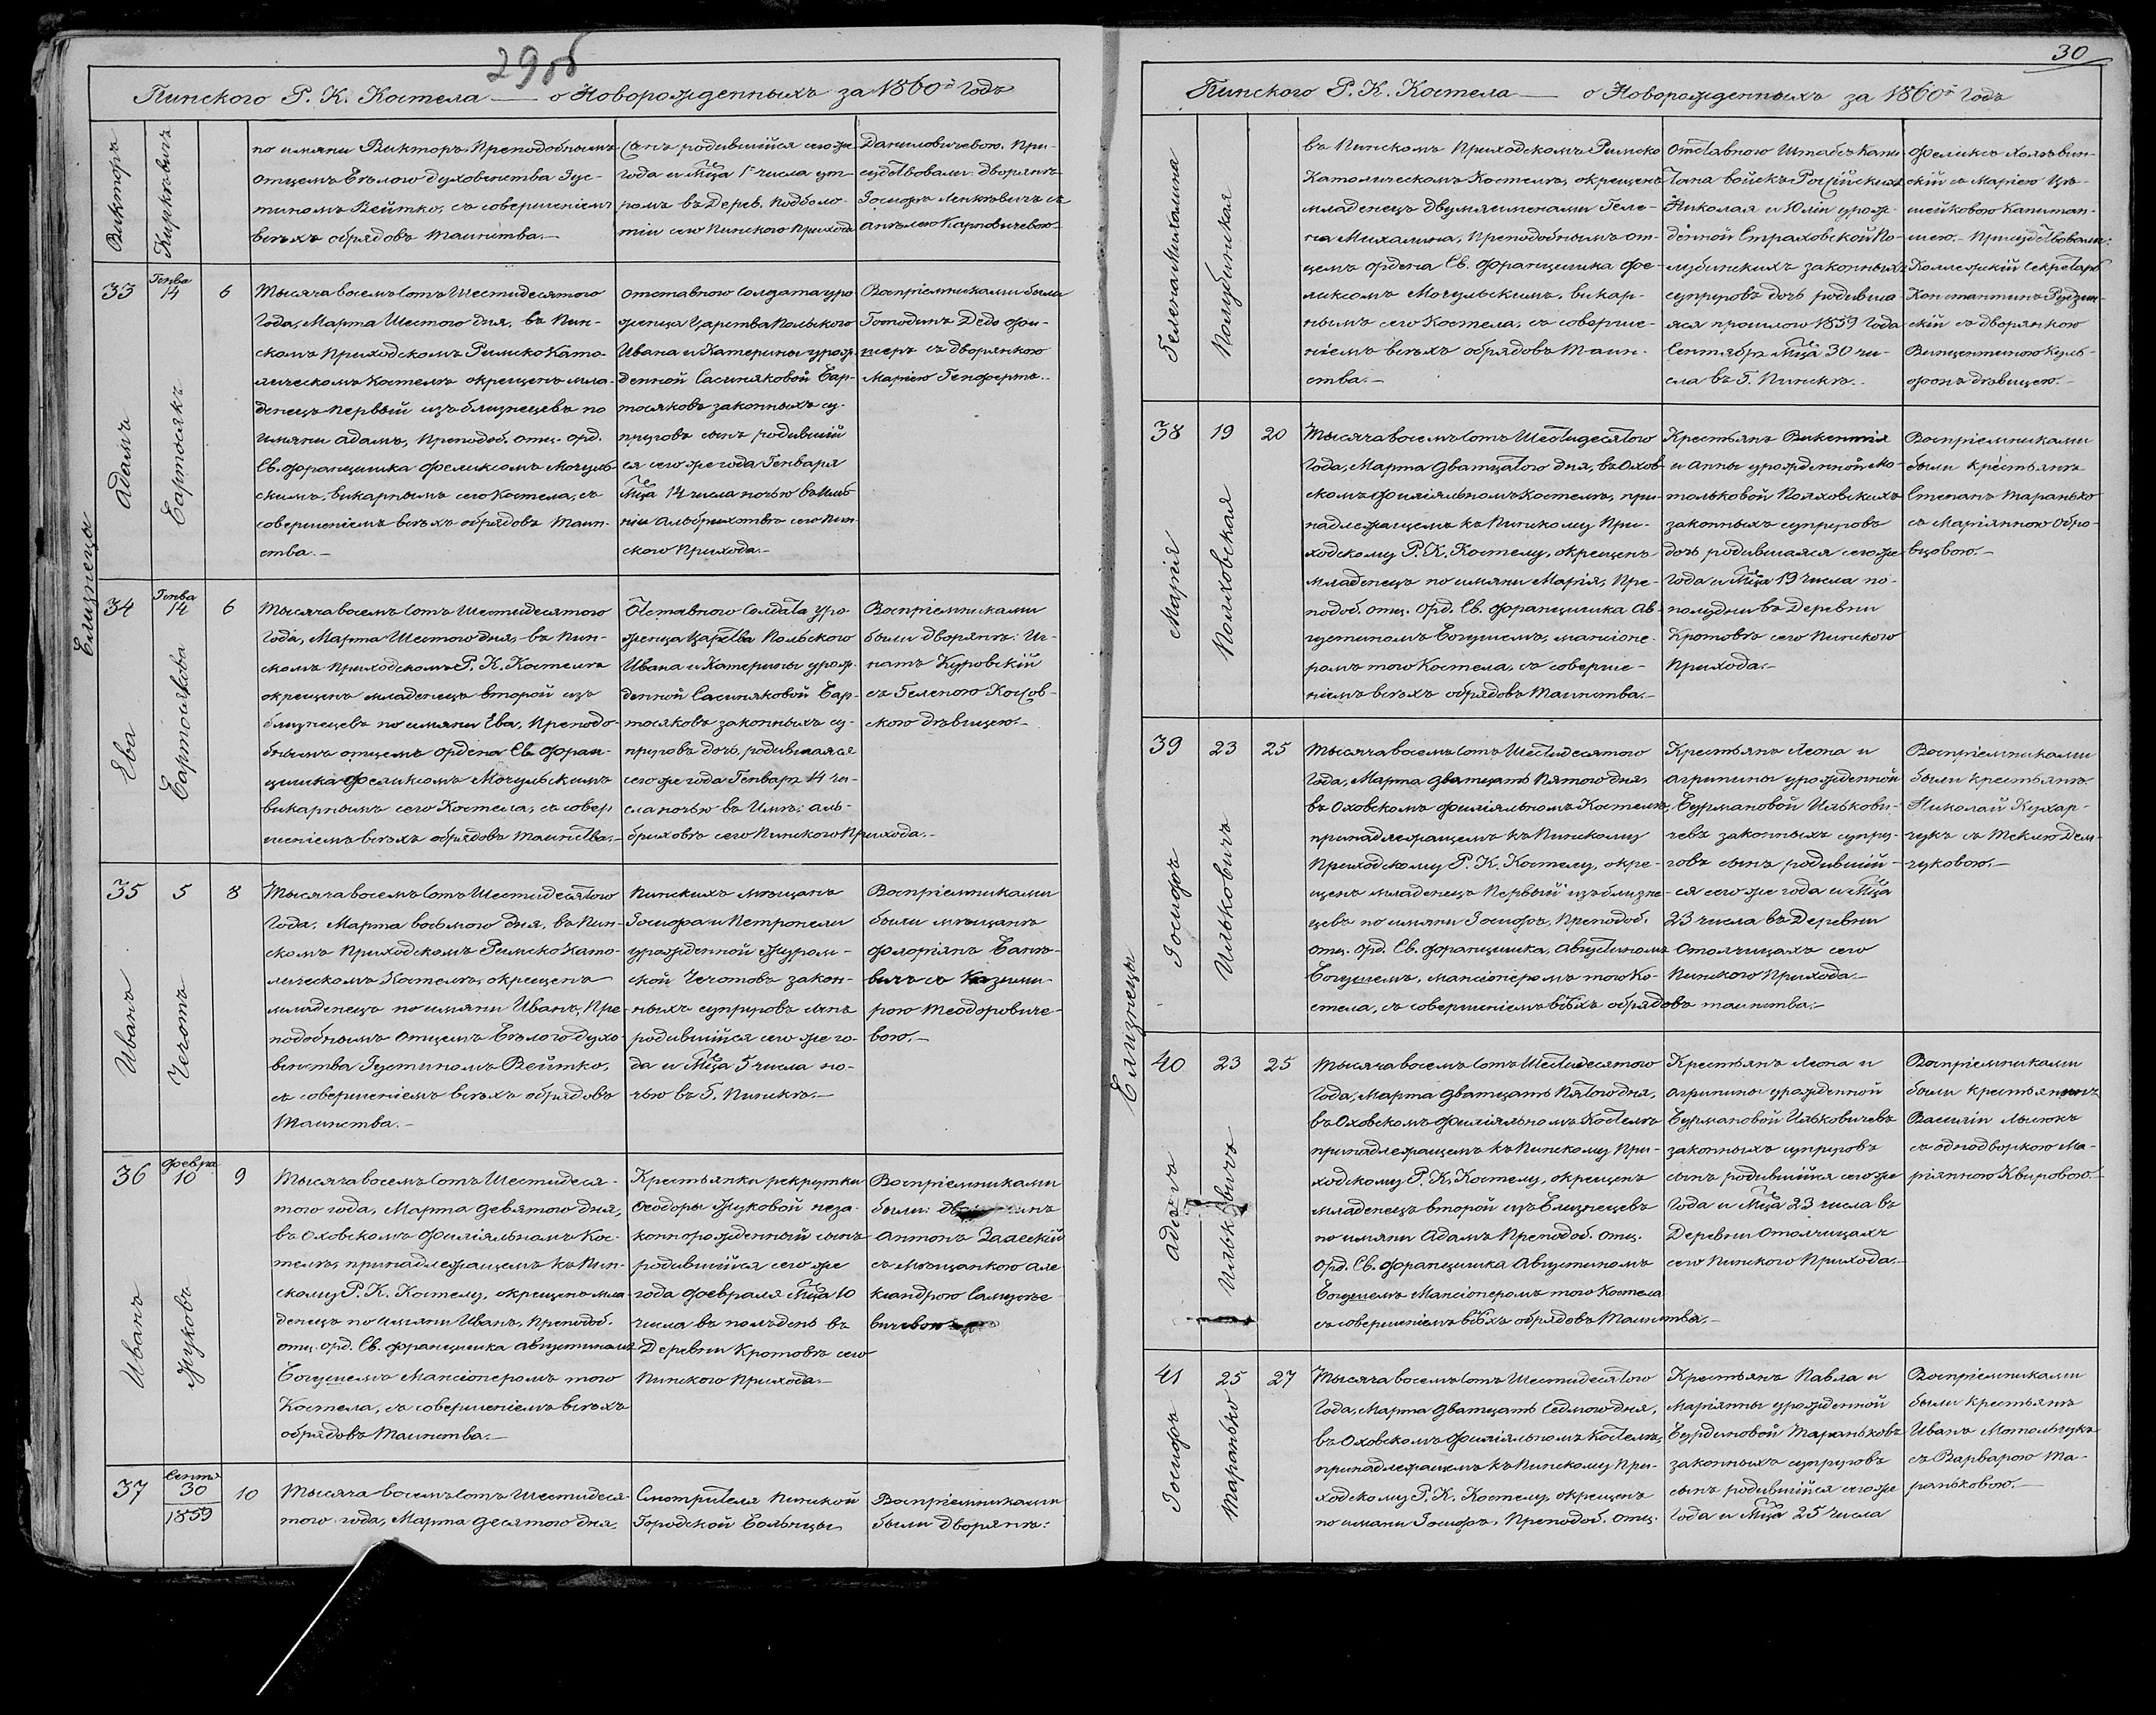 29 об
Пинского Р. К. Костела — о Новорожденныхъ за 1860й Годъ
Викторъ
по имяни Викторъ, Преподобнымъ
отцемъ Бѣлого Духовенства Іус-
тиномъ Вейтко, съ совершеніемъ
всѣхъ обрядовъ Таинства.—
Сынъ родившійся сего же
года и Мѣца 1 числа ут-
ромъ въ Дерев. Подболо-
тіи сего Пинского Прихода
Даниловичевою. При-
судствовали: дворянъ
Іосифъ Минкѣвичъ съ
Анелею Карповичевою
Близнецы
33
Генва
14
6
Адамъ
Бартосякъ
Тысяча восемъ сотъ Шестидесятого
Года, Марта Шестого дня, въ Пин-
скомъ Приходскомъ Римско Като-
лическомъ Костелѣ окрещенъ мла-
денецъ первый изъ близнецевъ по
имяни Адамъ, Преподоб. отц. орд.
Св. Францишка Феликсомъ Мочуль-
скимъ, викарнымъ сего Костела, съ
совершеніемъ всѣхъ обрядовъ Таин-
ства.—
отставного солдата уро
женца Царства Польского
Ивана и Катерины урож-
денной Сасиняковой Бар-
тосяковъ законныхъ су-
пруговъ сынъ родившій
ся сего же года Генваря
Мѣца 14 числа ночью въ Имѣ
ніи Альбрихтовѣ сего Пин-
ского Прихода.—
Воспріемниками были
Господинъ Дедо Фон-
шеръ съ дворянкою
Маріею Генферть.—
34
Генва
14
6
Ева
Бартосякова
Тысяча восемъ сотъ Шестидесятого
Года, Марта Шестого дня, въ Пин-
скомъ Приходскомъ Р. К. Костелѣ
окрещенъ младенецъ второй изъ
близнецевъ по имяни Ева, Преподо-
бнымъ отцемъ ордена Св. Фран-
цишка Феликсомъ Мочульскимъ
викарнымъ сего Костела, съ совер
шеніемъ всѣхъ обрядовъ Таинства.—
Отставного Солдата уро
женца Царства Польского
Ивана и Катерины урож-
денной Сасиняковой Бар-
тосяковъ законныхъ су-
пруговъ дочь, родившаяся
сего же года Генваря 14 чи-
сла ночью въ Имѣ: Аль-
бриховѣ сего Пинского Прихода.—
Воспріемниками
были дворянъ: Иг-
натъ Куровскій
съ Геленою Косов-
скою дѣвицею.—
35
5
8
Иванъ
Чечотъ
Тысяча восемъ сотъ Шестидесятого
Года, Марта восьмого дня, въ Пин-
скомъ Приходскомъ Римско Като-
лическомъ Костелѣ, окрещенъ
младенецъ по имяни Иванъ, Пре-
подобнымъ отцемъ Бѣлого Духо-
венства Іустиномъ Вейтко,
съ совершеніемъ всѣхъ обрядовъ
Таинства.—
Пинскихъ мѣщанъ
Іосифа и Петронели
урожденной Журом-
ской Чечотовъ закон-
ныхъ супруговъ сынъ
родившійся сего же го-
да и Мѣца 5 числа но-
чью въ Г. Пинскѣ.—
Воспріемниками
были мѣщанъ
Флоріянъ Банѣ-
вичъ съ Казими-
рою Теодоровиче-
вою.—
36
Февра
10
9
Иванъ
Жуковъ
Тысяча восемъ сотъ Шестидеся-
того года, Марта девятого дня,
въ Оховскомъ Филіяльномъ Кос-
телѣ, принадлежащемъ къ Пин-
скому Р. К. Костелу, окрещенъ мла
денецъ по имяни Иванъ, Преподоб.
отц. орд. Св. Францишка Августиномъ
Богушемъ Мансіонеромъ того
Костела, съ совершеніемъ всѣхъ
обрядовъ Таинства.—
Крестьянки рекрутки
Ѳеодоры Жуковой неза-
коннорожденный сынъ
родившійся сего же
года Февраля Мѣца 10
числа въ полъдень въ
Деревни Кротовѣ сего
Пинского Прихода.—
Воспріемниками
были:
Антонъ Залескій
съ Мѣщанкою Але
ксандрою
37
Сентя
30
1859
10
Тысяча восемъ сотъ Шестидеся-
того года, Марта десятого дня,
Смотрителя Пинской
Городской Больницы
Воспріемниками
были дворянъ:
30
Пинского Р. К. Костела — о Новорожденныхъ за 1860й Годъ
Гелена Михалина
Въ Пинскомъ Приходскомъ Римско
Католическомъ Костелѣ, окрещенъ
младенецъ двумя именами Геле-
на Михалина, Преподобнымъ от-
цемъ ордена Св. Францишка Фе-
ликсомъ Мочульскимъ, викар-
нымъ сего Костела, съ соверше-
ніемъ всѣхъ обрядовъ Таин-
ства.—
Отставного Штабсъ Капи
тана войскъ Россійскихъ
Николая и Юліи урож-
денной Страховской По-
лубинскихъ законныхъ
супруговъ дочь родивша
яся прошлого 1859 Года
Сентября Мѣца 30 чи-
сла въ Г. Пинскѣ.—
скій съ Маріею
Капитан-
шею.— Присудствовали:
Коллежскій Секретарь
Константинъ
скій съ дворянкою
Винцентиною Куль-
фонъ дѣвицею.—
38
19
20
Марія
Поляховская
Тысяча восемъ сотъ Шестидесятого
Года, Марта дватцатого дня, въ Охов-
скомъ Филіяльномъ Костелѣ, при-
надлежащемъ къ Пинскому При-
ходскому Р. К. Костелу, окрещенъ
младенецъ по имяни Марія, Пре-
подоб. отц. Орд. Св. Францишка Ав-
густиномъ Богушемъ, мансіоне-
ромъ того Костела, съ соверше-
ніемъ всѣхъ обрядовъ Таинства.—
Крестьянъ Викентія
и Анны урожденной Мо-
тольковой Поляховскихъ
законныхъ супруговъ
дочь родившаяся сего же
Года и Мѣца 19 числа по-
полудни въ Деревни
Кротовѣ сего Пинского
Прихода.—
Воспріемниками
были крестьянъ
Степанъ Таранько
съ Маріянною Обро-
вцовою.—
Близнецы
39
23
25
Іосифъ
Илькович
Тысяча восемъ сотъ Шестидесятого
Года, Марта дватцать Пятого дня,
въ Оховскомъ Филіяльномъ Костелѣ,
принадлежащемъ къ Пинскому
Приходскому Р. К. Костелу, окре-
щенъ младенецъ Первый изъ близне-
цевъ по имяни Іосифъ, Преподоб.
отц. орд. Св. Францишка, Августиномъ
Богушемъ, мансіонеромъ того Ко-
стела, съ совершеніемъ всѣхъ обрядовъ таинства.—
Крестьянъ Леона и
Агрипины урожденной
Бурмановой Илькови-
чевъ законныхъ супру-
говъ сынъ родившій-
ся сего же года и Мѣца
23 числа въ Деревни
Отолчицахъ сего
Пинского Прихода.—
Воспріемниками
были крестьянъ
Николай Кухар-
чукъ съ Теклею Дем-
чуковою.—
40
23
25
Адамъ
Ильковичъ
Тысяча восемъ сотъ Шестидесятого
Года, Марта дватцать Пятого дня,
въ Оховскомъ Филіяльномъ Костелѣ
принадлежащемъ къ Пинскому При-
ходскому Р. К. Костелу, окрещенъ
младенецъ второй изъ Близнецевъ
по имяни Адамъ Преподоб. отц.
Орд. Св. Францишка Августиномъ
Богушемъ Мансіонеромъ того Костела
съ совершеніемъ всѣхъ обрядовъ Таинства.—
Крестьянъ Леона и
Агрипины урожденной
Бурмановой Ильковичевъ
законныхъ супруговъ
сынъ родившійся сего же
Года и Мѣца 23 числа въ
Деревни Отолчицахъ
сего Пинского Прихода.—
Воспріемниками
были крестьянинъ
Василій Лысюкъ
съ однодворкою Ма-
ріянною Квировою.—
41
25
27
Іосифъ
Таранько
Тысяча восемъ сотъ Шестидесятого
Года, Марта дватцать Седмого дня,
въ Оховскомъ Филіяльномъ Костелѣ,
принадлежащемъ къ Пинскому При-
ходскому Р. К. Костелу, окрещенъ
по имяни Іосифъ, Преподоб. отц.
Крестьянъ Павла и
Маріянны урожденной
Бурдиновой Тараньковъ
законныхъ супруговъ
сынъ родившійся сего же
Года и Мѣца 25 числа
Воспріемниками
были крестьянъ
Иванъ Мотольчукъ
съ Варварою Та-
раньковою.—